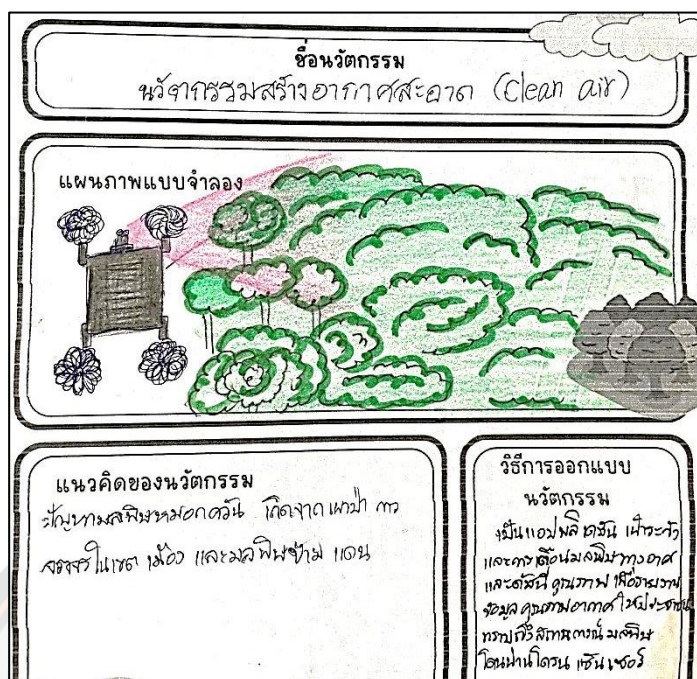 ชื่อนวัตกรรม
นวัตกรรมสร้างอากาศสะอาด (Clean air)
แผนภาพแบบจำลอง
แนวคิดของนวัตกรรม
ปัญหามลพิษหมอกควัน เกิดจากเผาป่า การ
จราจรในเขตเมือง และมลพิษข้ามแดน
วิธีการออกแบบ
นวัตกรรม
เป็นแอปพลิเคชัน เฝ้าระวัง
และการเตือนมลพิษทางอากาศ
และดัชนีคุณภาพ เพื่อรายงาน
ข้อมูลคุณภาพอากาศ ให้ประชาชน
ทราบถึงสถานการณ์มลพิษ
โดยผ่านโดรน เซ็นเซอร์